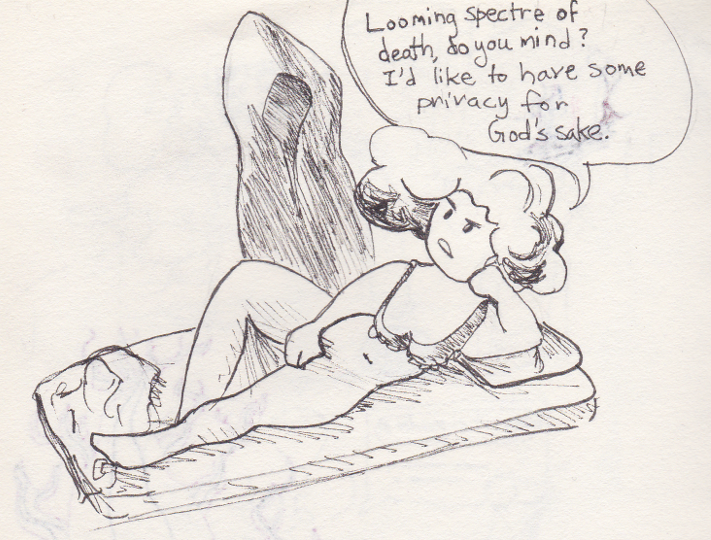 Looming spectre of
death, do you mind?
I'd like to have some
privacy for
God's sake.